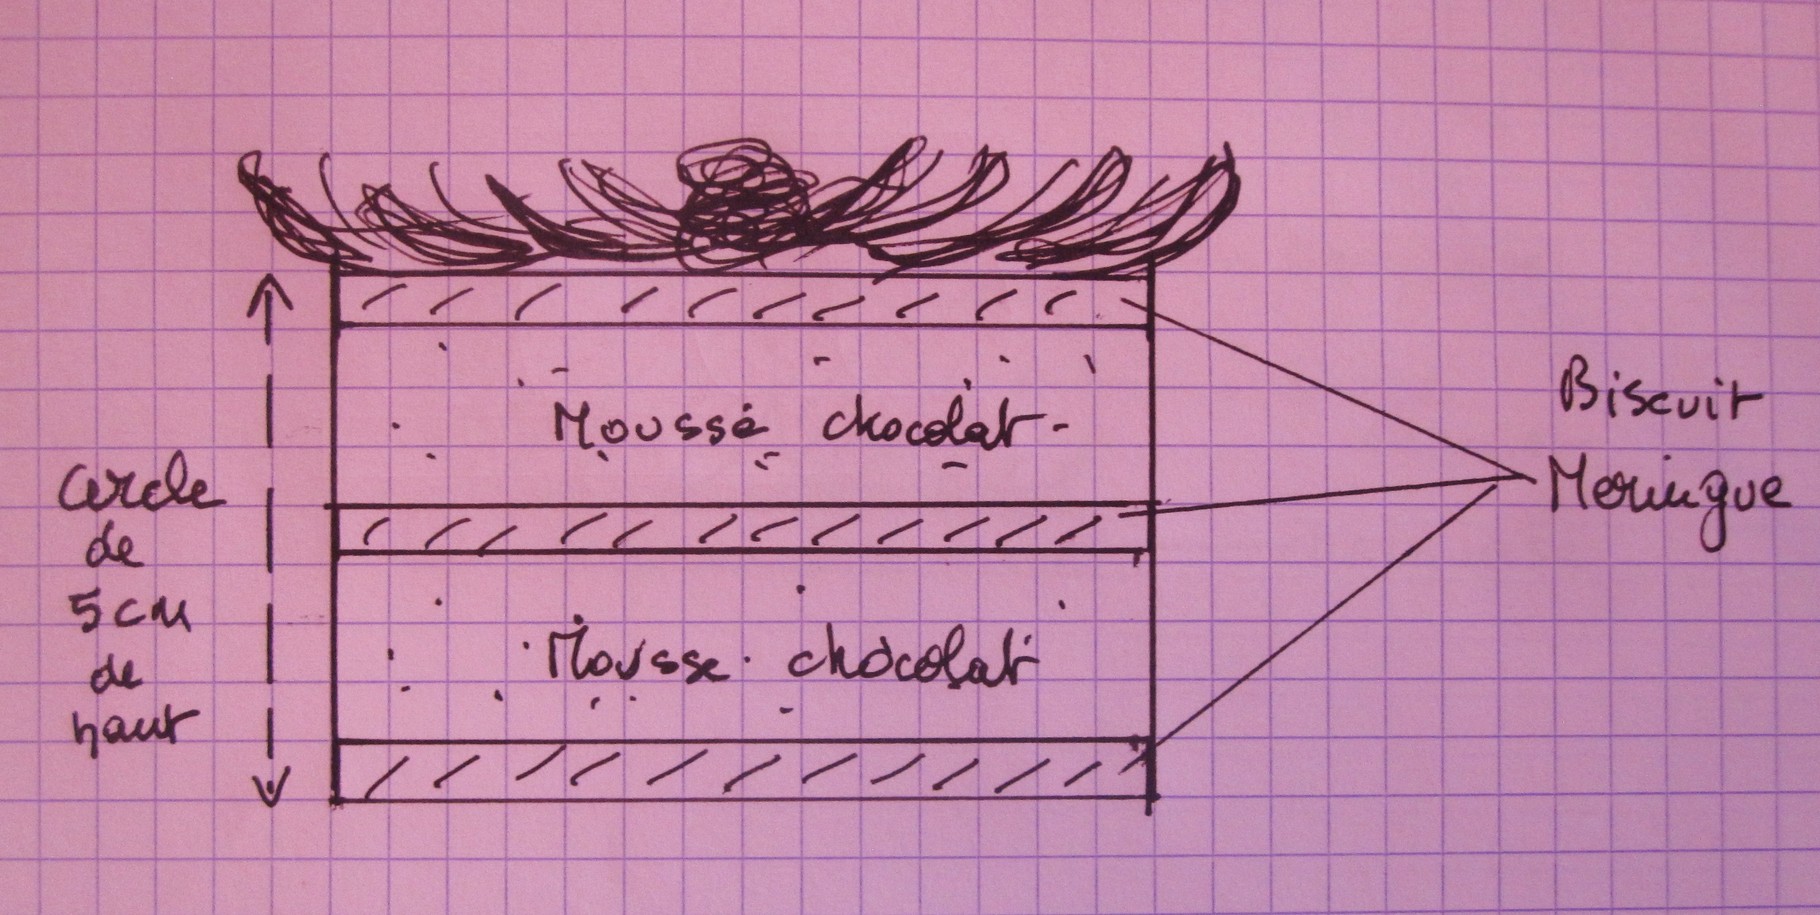 Mousse chocolat
Biscuit
Meringue
Cercle
de
5 cm
de
haut
Mousse chocolat